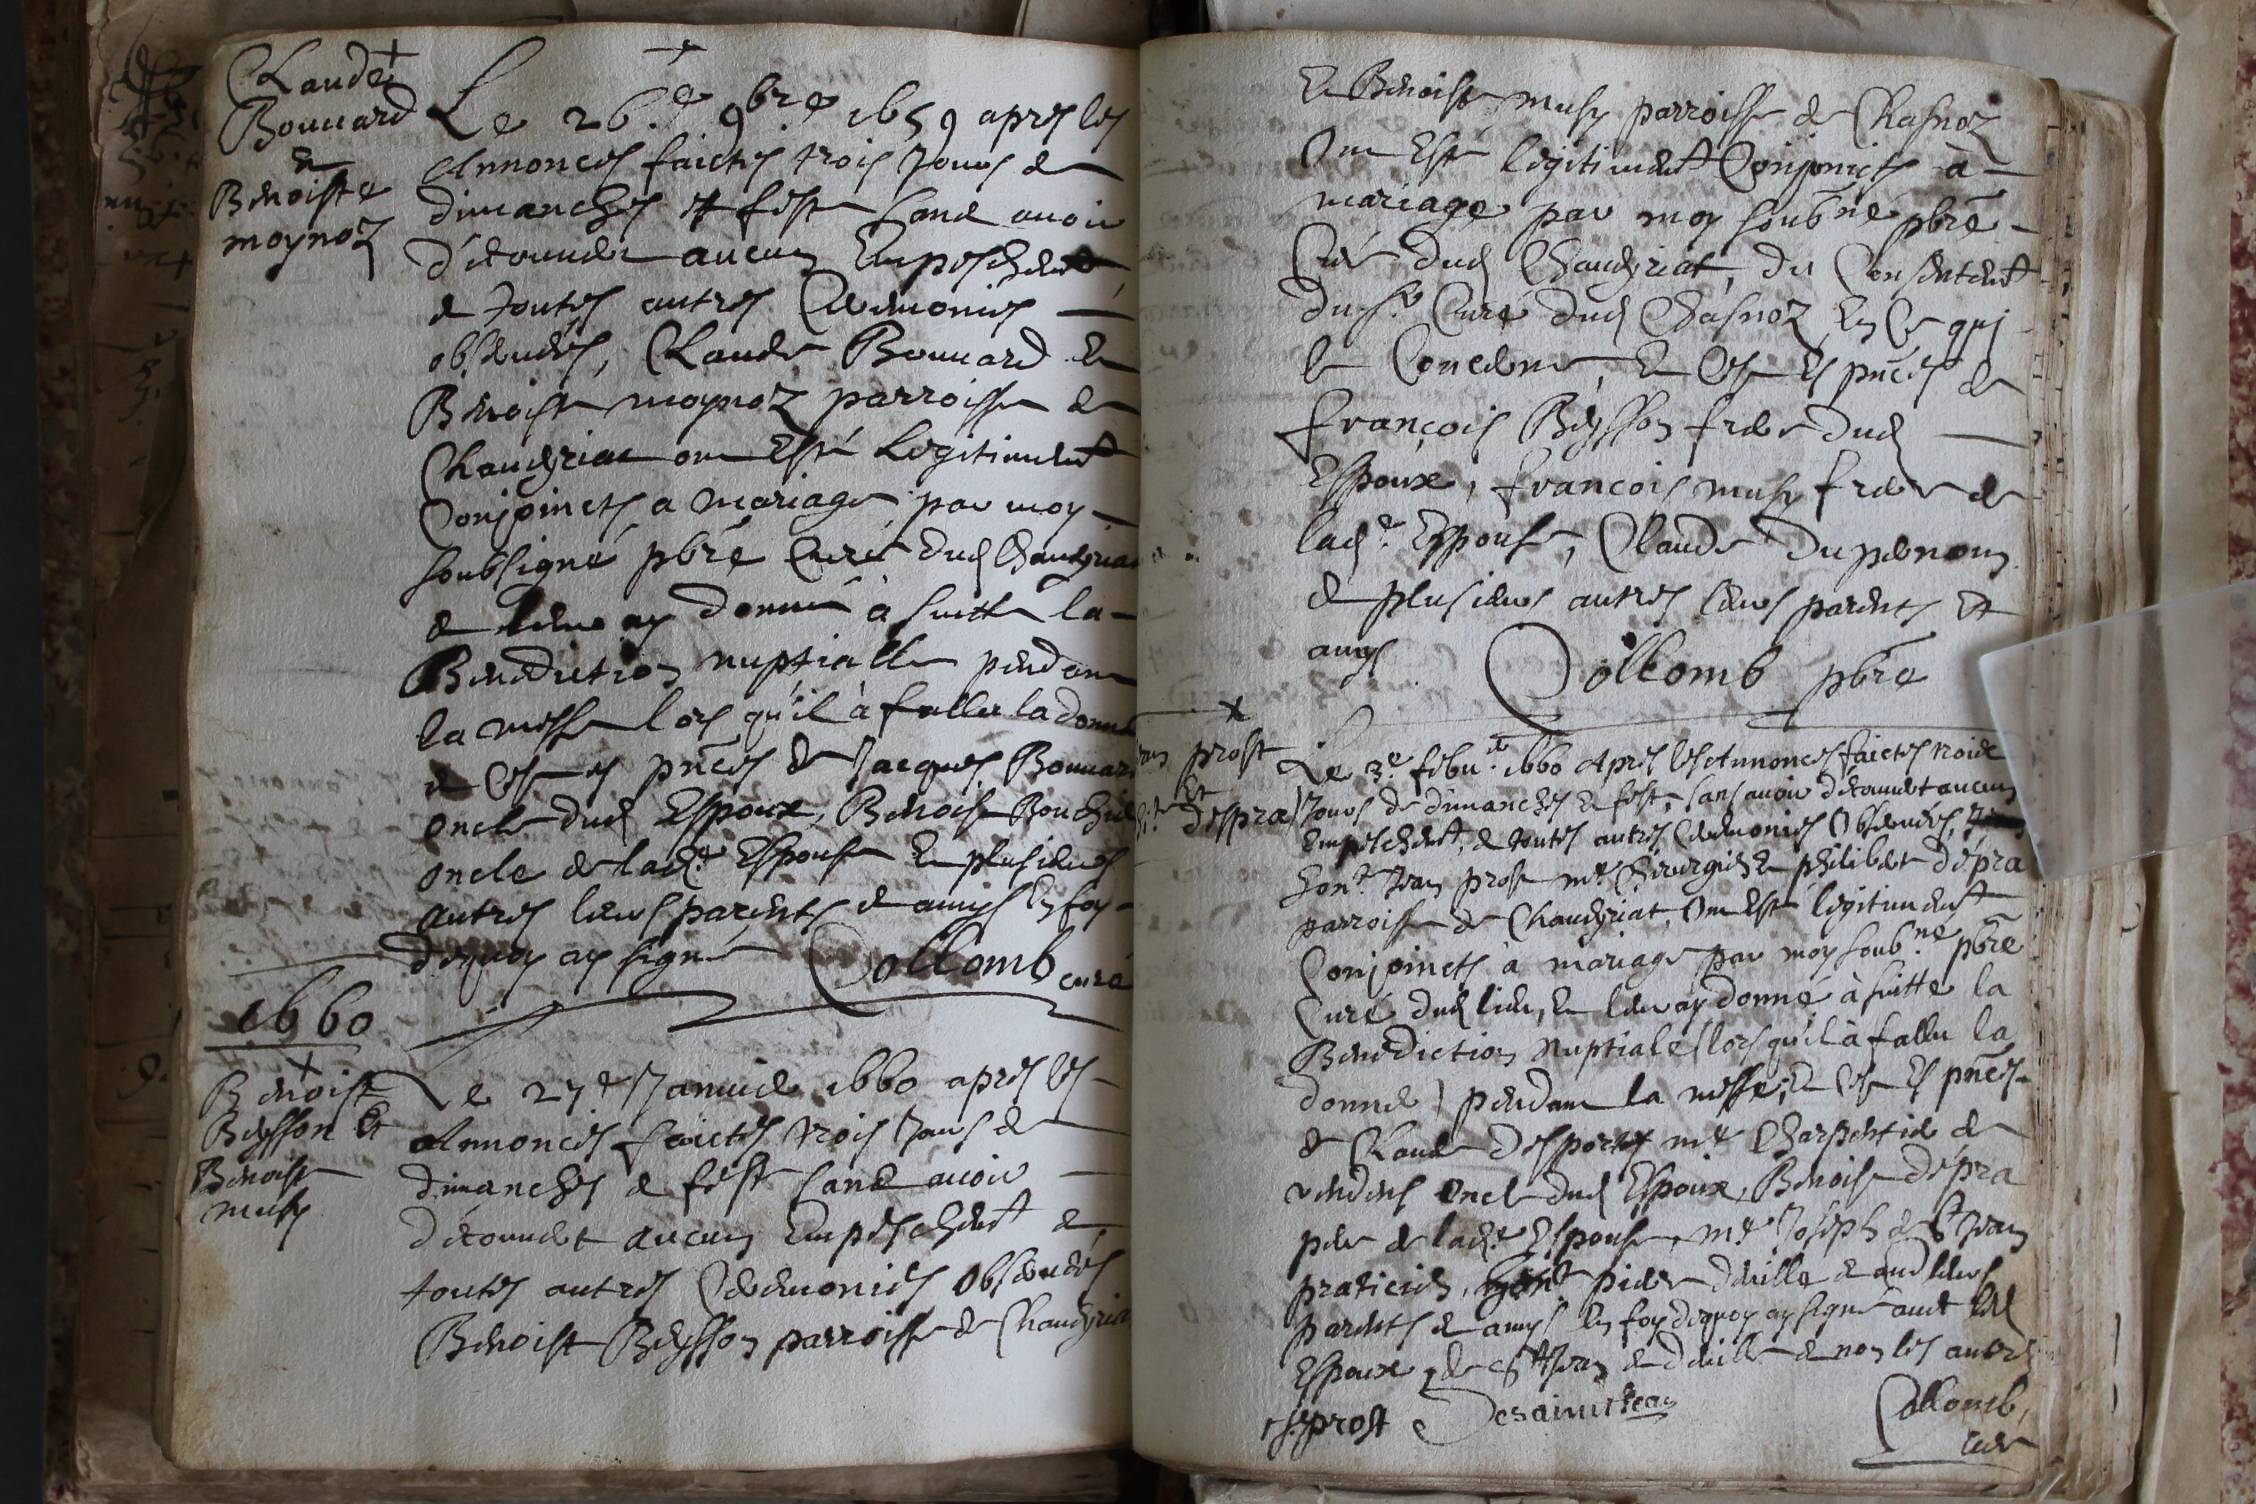 Claude
Bouuard
et
Benoiste
moynoz
Le 26.e 9bre 1659 apres les
Annonces faictes trois Jours de
dimanches et feste sans auoir
décounert aucun Empeschemt
et toutes autres Ceremonies
obseruées, Claude Bouuard Et
Benoiste moynoz parroisse de
Chaueyriat ont Esté Legitimemt
Conjoincts a mariage par moy
soubsigné pbre Curé dud Chaueyriat
et leur ay donné à suitte la
Benediction nuptialle pendant
la messe lors qu'il à fallu la donner
et Ce es pnces de Jacques Bouuard
oncle dud Espoux, Benoist
oncle de lad.e Espouse Et plusieurs
autres leurs parents et amys En foy
dequoy ay signé Collomb curé
1660
Benoist
Beysson Et
Benoiste
musy
Le 27e Januier 1660 apres les
Annonces faictes trois Jours de
dimanches et feste sans auoir
découuert aucun Empeschemt et
toutes autres Ceremonies Obseruées
Benoist Beysson parroisse de Chaueyriat
Et Benoiste musy parroisse de Chasnoz
Ont Esté légitimemt Conjoincts à
mariage par moy soubné pbre
Curé dud Chaueyriat, du Consentemt
du sr Curé dud Chasnoz En Ce qui
le Concerne, Et Ce Es pnces de
françois Beysson frere dud
Espoux, francois musy frere de
lad.e Espouse, Claude Dupenom
et plusieurs autres leurs parents Et
amys
Collomb pbre
prost
Et
despra
Le 3e febu.er 1660 Apres les Annonces faictes trois
Jours de dimanches Et feste, sans auoir découuert aucun
Empeschemt, et toutes autres Ceremonies Obseruées,
hon.e Jean prost me Chirurgien Et philiberte dépra
parroisse de Chaueyriat, Ont Esté légitimemt
Conjoincts à mariage par moy soubné pbre
Curé dud lieu, Et leur ay donné à suitte la
Benediction Nuptiale (lors qu'il à fallu la
donner) pendant la messe; Et Ce Es pnces
de Claude Desportes me Charpentier de
oncle dud Espoux, Benoist dépra
pere de lad.e Espouse, me Joseph de St Jean
praticien, pierre Deuille et leurs
parents et amys En foy dequoy ay signé auec led
Espoux, de St Jean et deuille et non les autres
prost Desainctjean
Collomb,
Curé